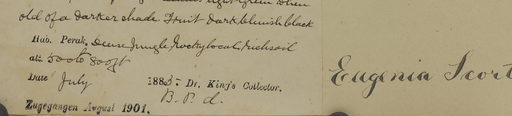 light green when
old of a darker shade Fruit dark bluish black
Hab. Perak, Dense Jungle, Rocky locat. rich soil
alt. 500 to 800 ft
Date July 1885. Dr. King's Collector.
B. P. d.
Zugegangen August 1901.
Eugenia Scort